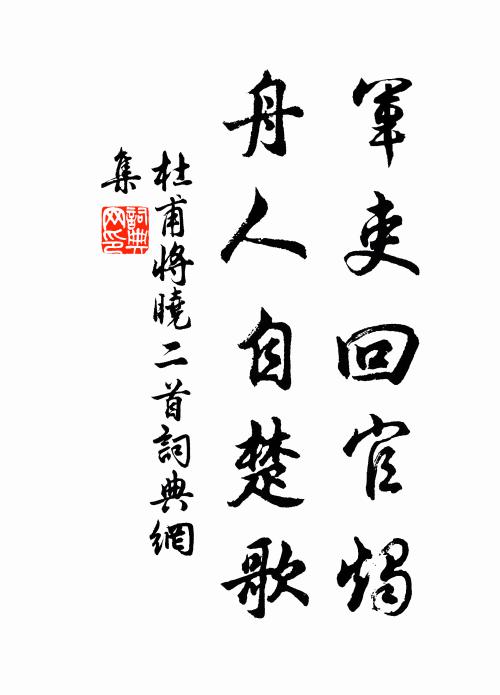 軍吏回官燭
舟人自楚歌
杜甫將曉二首詞典網
集
詞典网印